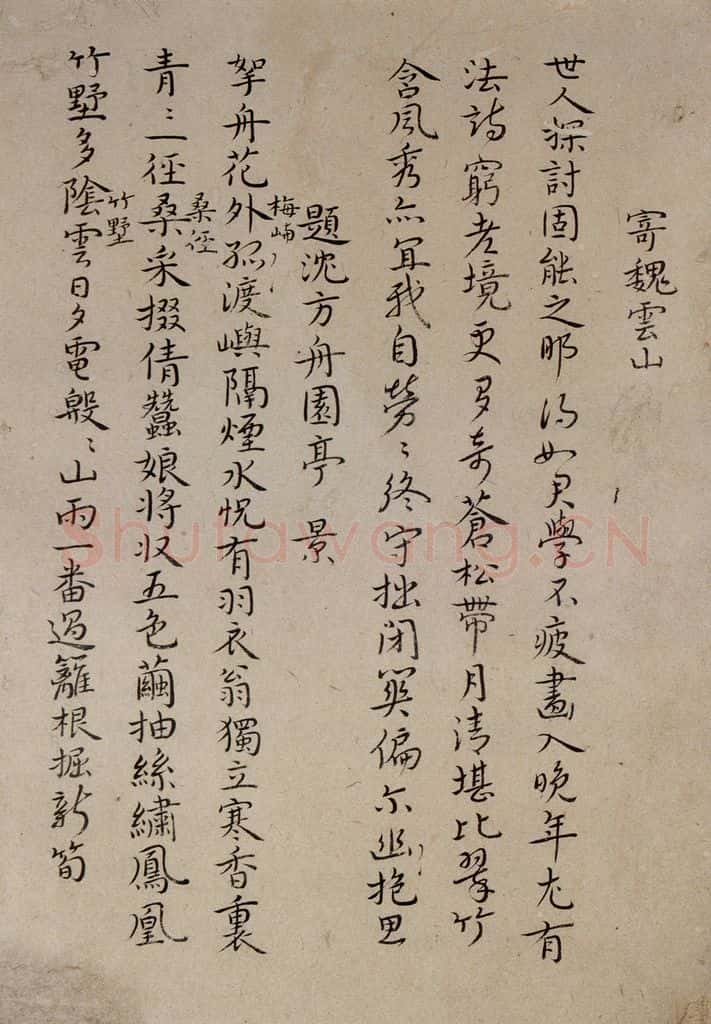 寄魏雲山
世人探討固能之那得如君學不疲畫入晚年尤有
法詩窮老境更多奇蒼松帶月清堪比翠竹
含風秀亦宜我自勞〻終守拙閉門偏尔出抱思
題沈方舟園亭 景
挐舟花外孤渡嶼隔煙水怳有羽衣翁獨立寒香裏
梅嶼
青〻一徑桑采掇倩蠶娘將収五色繭抽絲繡鳳凰
桑徑
竹墅多陰雲日夕電殷〻山雨一番過籬根掘新筍
竹墅
Shufawang.CN